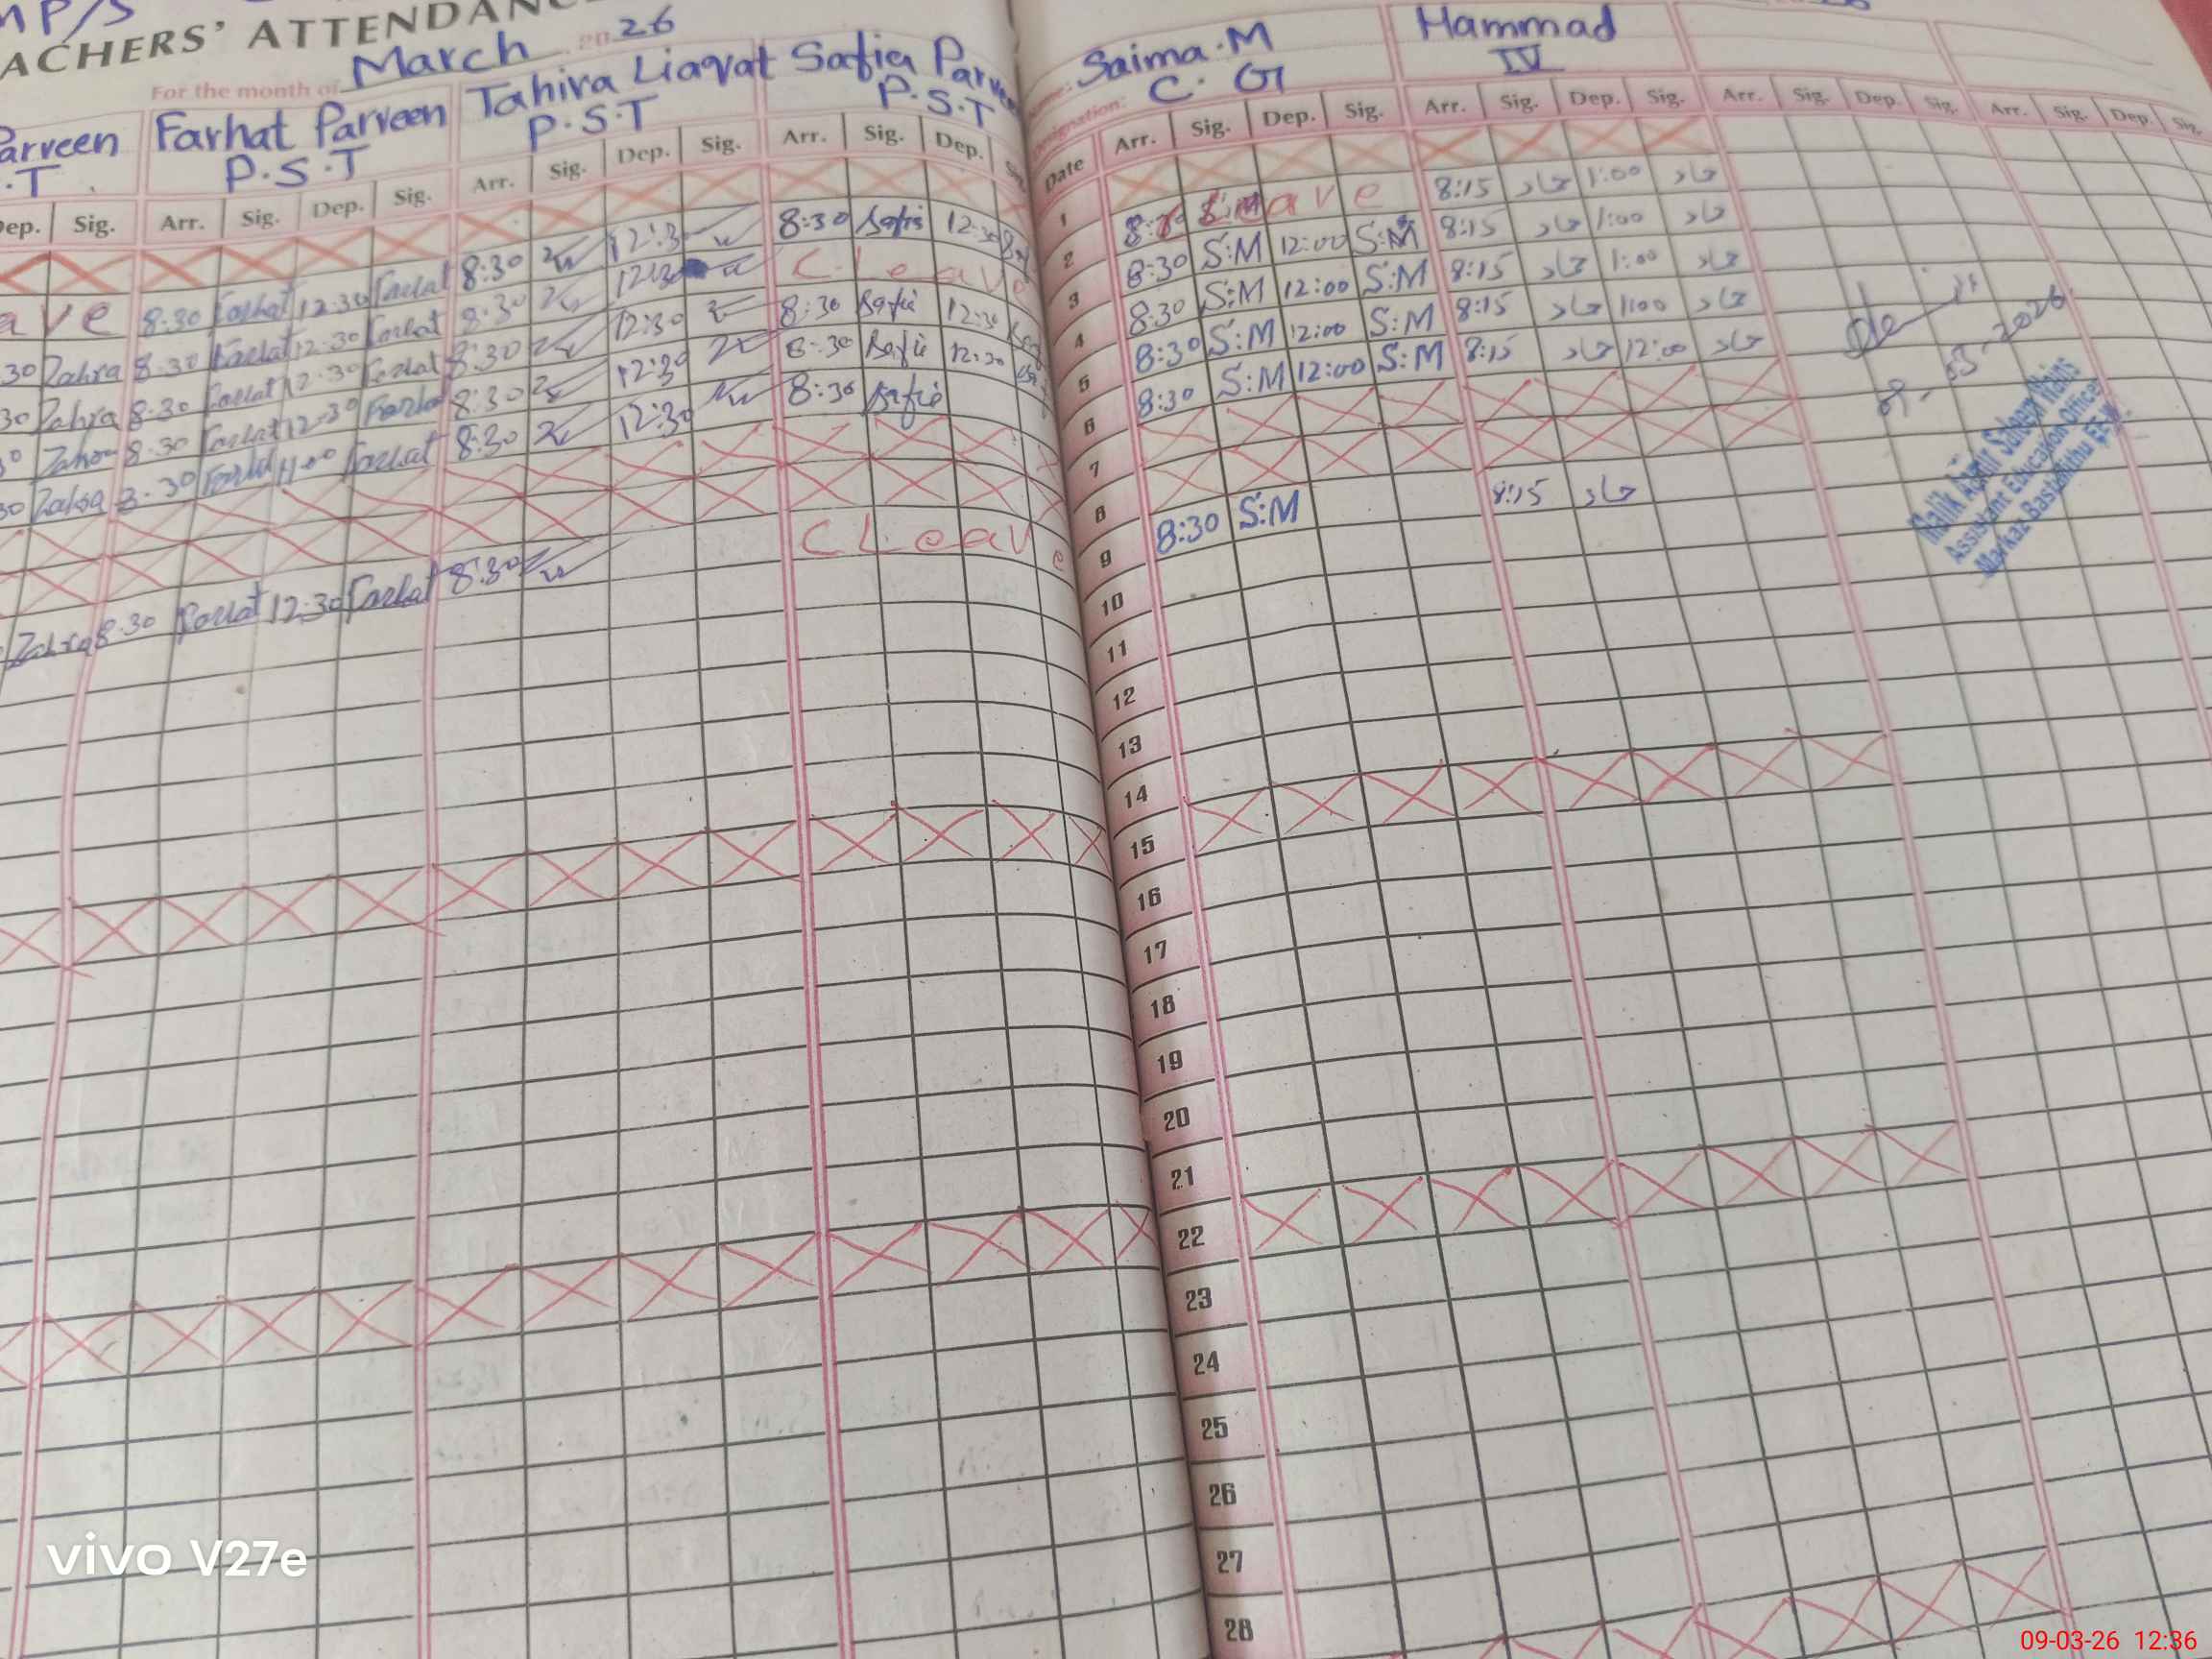 MP/S
ACHERS' ATTENDANC
For the month of March 2026
arveen Farhat Parveen Tahira Liaqat Safia Parveen
.T P.S.T P.S.T P.S.T
Dep. Sig. Arr. Sig. Dep. Sig. Arr. Sig. Dep. Sig. Arr. Sig. Dep. Sig.
ave 8:30 Farhat 12:30 Farhat 8:30 12:3 8:30 Safia 12:30
30 Zahra 8:30 Farhat 12:30 Farhat 8:30 12:30 C. Leave
30 Zahra 8:30 Farhat 12:30 Farhat 8:30 12:30 8:30 Safia 12:30
30 Zahra 8:30 Farhat 12:30 Farhat 8:30 12:30 8:30 Safia 12:30
30 Zahra 8:30 Farhat 11:00 Farhat 8:30 12:30 8:30 Safia
Zahra 8:30 Farhat 12:30 Farhat 8:30 C Leave
Saima.M Hammad
Designation: C. G IV
Date Arr. Sig. Dep. Sig. Arr. Sig. Dep. Sig. Arr. Sig. Dep. Sig. Arr. Sig. Dep. Sig.
1
2 8:30 S:M Leave 8:15 حماد 1:00 حماد
3 8:30 S:M 12:00 S:M 8:15 حماد 1:00 حماد
4 8:30 S:M 12:00 S:M 8:15 حماد 1:00 حماد
5 8:30 S:M 12:00 S:M 8:15 حماد 1:00 حماد
6 8:30 S:M 12:00 S:M 8:15 حماد 12:00 حماد
7
8
9 8:30 S:M 8:15 حماد
10
11
12
13
14
15
16
17
18
19
20
21
22
23
24
25
26
27
28
9-03-2026
Malik Saleem
Assistant Education Officer
Markaz Basti
vivo V27e
09-03-26 12:36